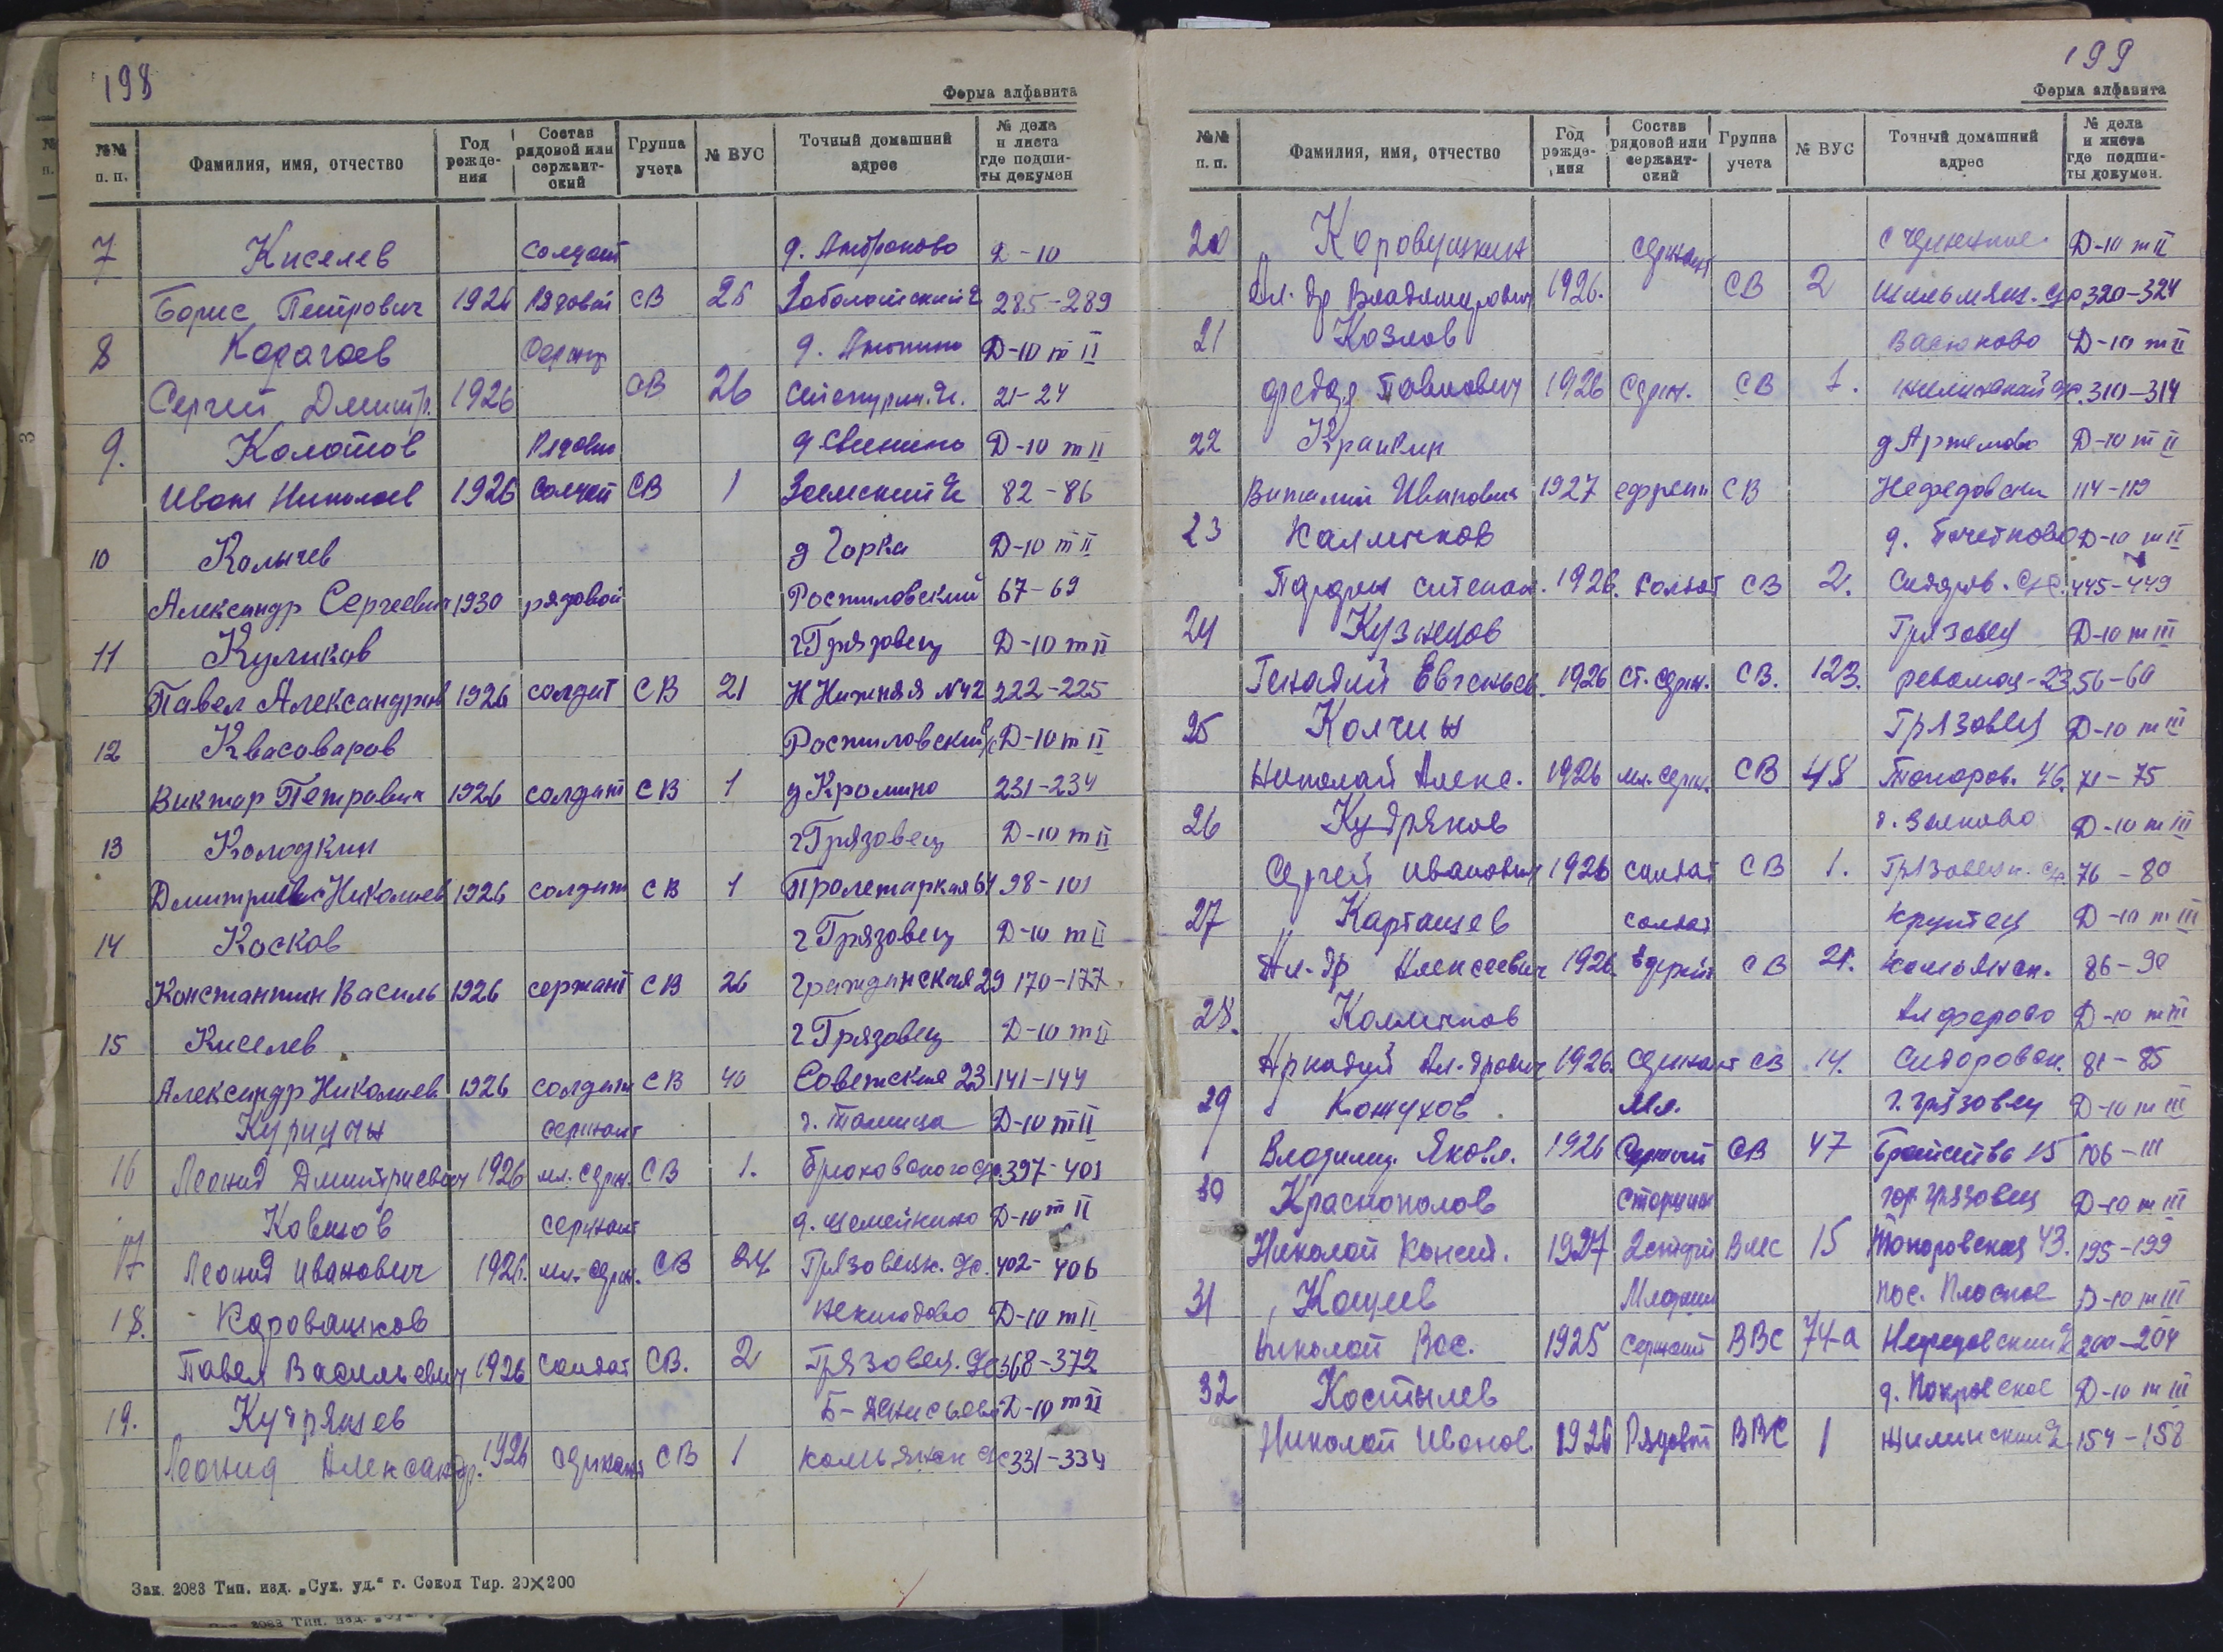 198
Форма алфавита
№№ п. п. Фамилия, имя, отчество Год рожде-ния Состав рядовой или сержант-ский Группа учета № ВУС Точный домашний адрес № дела и листа где подши-ты докумен
7 Киселев солдат д. Антроново Д-10
Борис Петрович 1926 Рядовой СВ 285-289
8 Карагаев д. Анохино Д-10 т II
Сергей Дмитр. 1926 СВ 26 21-24
9. Колотов Рядовой д Свинино Д-10 т II
Иван Николаев 1926 СВ 1 82-86
10 Колычев д Горка Д-10 т II
Александр Сергеевич 1930 рядовой Ростиловский 67-69
11 Куликов г Грязовец Д-10 т II
Павел Александров 1926 солдат СВ 21 Н Нижняя №42 222-225
12 Квасоваров Ростиловский с/с Д-10 т II
Виктор Петрович 1926 солдат СВ 1 д Кромино 231-234
13 Колодкин г Грязовец Д-10 т II
Николаев 1926 солдат СВ 1 98-101
14 Косков г Грязовец Д-10 т II
Константин Василь 1926 сержант СВ 26 Гражданская 29 170-177
15 Киселев г Грязовец Д-10 т II
Александр Николаев 1926 солдат СВ 40 Советская 23 141-144
Курицын сержант Д-10 т II
16 Леонид Дмитриевич 1926 мл. серж. СВ 1. 397-401
Ковшов сержант д. Семейкино Д-10 т II
17 Леонид Иванович 1926. мл. серж. СВ 24 Грязовецк. 402-406
18. Коровашков Неклюдово Д-10 т II
Павел Васильевич 1926 солдат СВ. 2 Грязовец. 368-372
19. Кудряшев Б-Денисьево Д-10 т II
Леонид Александр. 1926 сержант СВ 1 Комьянск с/с 331-334
Зак. 2083 Тип. изд. „Сух. уд.“ г. Сокол Тир. 20×200
199
Форма алфавита
№№ п. п. Фамилия, имя, отчество Год рожде-ния Состав рядовой или сержант-ский Группа учета № ВУС Точный домашний адрес № дела и листа где подши-ты докумен.
20 Коровушкин сержант Д-10 т II
Ал-др Владимирович 1926. СВ 2 320-324
21 Козлов Васюково Д-10 т II
Павлович 1926 Серж. СВ 1. 310-314
22 Крайкин д Артемово Д-10 т II
Виталий Иванович 1927 СВ Нефедовски 114-119
23 Калинков Д-10 т II
1926. солдат СВ 2. 445-449
24 Кузнецов Грязовец Д-10 т III
Генадий Евгеньев. 1926 ст. серж. СВ. 123. 56-60
25 Колчин Грязовец Д-10 т III
Николай Алекс. 1926 мл. серж. СВ 48 Топоров. 46. 71-75
26 Кудряков д. Волково Д-10 т III
Сергей Иванович 1926 солдат СВ 1. Грязовецк. с/с 76-80
27 Карташев солдат Крутец Д-10 т III
Ал-др Алексеевич 1926. СВ 21. Комьянск. 86-90
28. Калинков Алферово Д-10 т III
Аркадий Ал-дрович 1926. сержант СВ 14. Сидоровск. 81-85
29 Кожухов Мл. г. Грязовец Д-10 т III
Владимир. Яковл. 1926 Сержант СВ 47 Братства 15 106-111
30 Краснополов Старшин гор. Грязовец Д-10 т III
Николай Конст. 1927 2 статьи ВМС 15 Топоровская 43. 195-199
31 Кощеев Младший пос. Плоское Д-10 т III
Николай Вас. 1925 Сержант ВВС 74-а 200-204
32 Костылев д. Покровское Д-10 т III
Николай Иванов. 1926 Рядовой ВВС 1 154-158